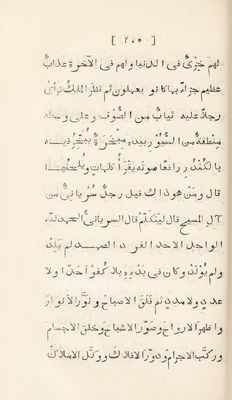 [ ٢٠٥ ]
لهم خزيٌ في الدنيا ولهم في الآخرة عذابٌ
عظيم جزاءً بما كانو يعملون ثم نظر الملك فرأى
رجلًا عليه ثيابٌ من الصُّوف وعلى وسطه
منطقةٌ من السُّيور بيده مبخرةٌ يبخِّر فيها
بالكُندُر رافعًا صوته يقرأُ كلمات ويلحّنها
قال ومَن هو ذاك قيل رجلٌ سُريانيٌّ من
آل المسيح قال ليتكلّم قال السريانيُّ الحمد لله
الواحد الاحد الفرد الصمد لم يلد
ولم يُولَد وكان في بدءٍ بلا كُفؤٍ احدًا ولا
عددٍ ولا مددٍ ثم فلق الاصباح ونوَّر الانوار
واظهر الارواح وصوّر الاشباح وخلق الاجسام
وركّب الاجرام ودوّر الافلاك ووكّل الاملاك